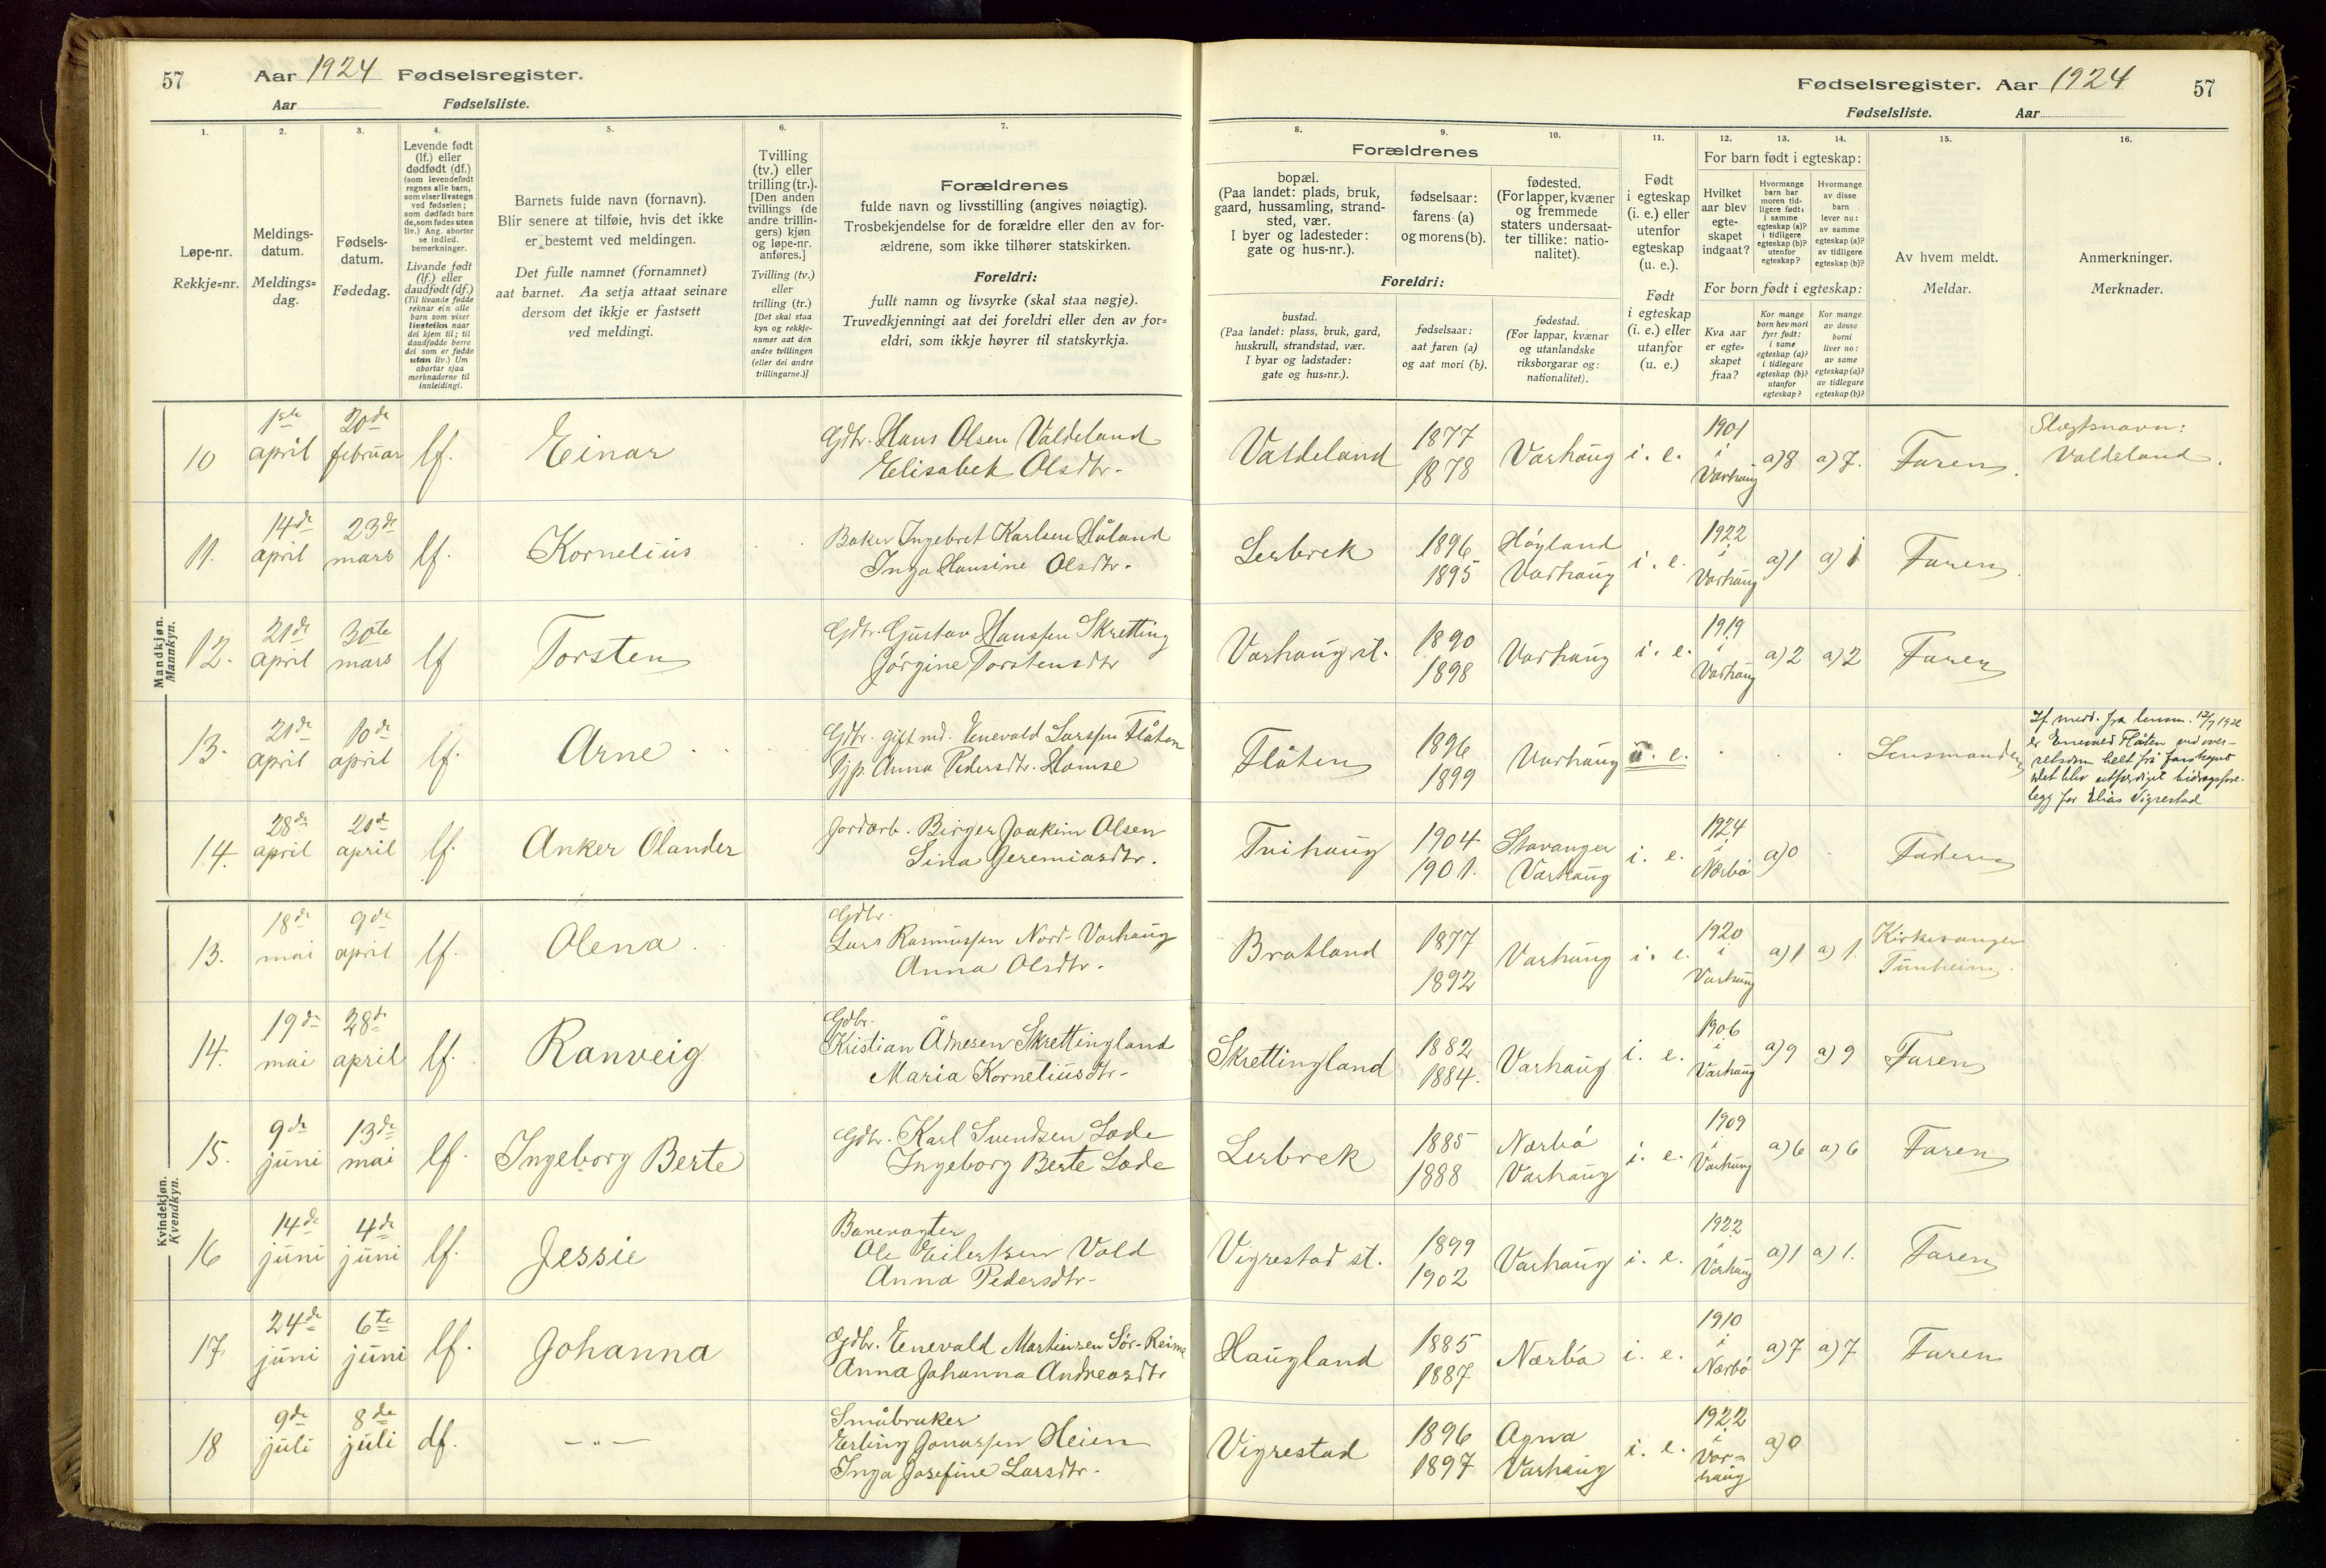 57 Aar 1924 Fødselsregister.
Aar Fødselsliste.
Fødselsregister. Aar 1924 57
Fødselsliste. Aar
1.
Løpe-nr.
Rekkje=nr.
2.
Meldings-
datum.
Meldings=
dag.
3.
Fødsels-
datum.
Fødedag.
4.
Levende født
(lf.) eller
dødfødt (df.)
(som levendefødt
regnes alle barn,
som viser livstegn
ved fødselen;
som dødfødt bare
de, som fødes uten
liv.) Ang. aborter
se indled.
bemerkninger.
Livande født
(lf.) eller
daudfødt (df.)
(Til livande fødde
reknar ein alle
barn som viser
livsteikn naar
dei kjem til; til
daudfødde berre
dei som er fødde
utan liv.) Um
abortar sjaa
merknaderne til
innleidingi.
5.
Barnets fulde navn (fornavn).
Blir senere at tilføie, hvis det ikke
er bestemt ved meldingen.
Det fulle namnet (fornamnet)
aat barnet. Aa setja attaat seinare
dersom det ikkje er fastsett
ved meldingi.
6.
Tvilling
(tv.) eller
trilling (tr.).
[Den anden
tvillings (de
andre trillin-
gers) kjøn
og løpe-nr.
anføres.]
Tvilling (tv.)
eller
trilling (tr.)
[Det skal staa
kyn og rekkje-
numer aat den
andre tvillingen
(eller dei andre
trillingarne.)]
7.
Forældrenes
fulde navn og livsstilling (angives nøiagtig).
Trosbekjendelse for de forældre eller den av for-
ældrene, som ikke tilhører statskirken.
Foreldri:
fullt namn og livsyrke (skal staa nøgje).
Truvedkjenningi aat dei foreldri eller den av for=
eldri, som ikkje høyrer til statskyrkja.
8.
Forældrenes
bopæl.
(Paa landet: plads, bruk,
gaard, hussamling, strand-
sted, vær.
I byer og ladesteder:
gate og hus-nr.).
Foreldri:
bustad.
(Paa landet: plass, bruk, gard,
huskrull, strandstad, vær.
I byar og ladstader:
gate og hus=nr.).
9.
fødselsaar:
farens (a)
og morens (b).
fødselsaar:
aat faren (a)
og aat mori (b).
10.
fødested.
(For lapper, kvæner
og fremmede
staters undersaat-
ter tillike: natio-
nalitet).
fødestad.
(For lappar, kvænar
og utanlandske
riksborgarar og:
nationalitet).
11.
Født
i egteskap
(i. e.) eller
utenfor
egteskap
(u. e.).
Født
i egteskap
(i. e.) eller
utanfor
(u. e.)
For barn født i egteskap:
12.
Hvilket
aar blev
egte-
skapet
indgaat?
For born født i egteskap:
Kva aar
er egte=
skapet
fraa?
13.
Hvormange
barn har
moren tid-
ligere født:
i samme
egteskap (a)?
i tidligere
egteskap (b)?
utenfor
egteskap?
Kor mange
born hev mori
fyrr født:
i same
egteskap (a)?
i tidlegare
egteskap (b)?
utanfor
egteskap?
14.
Hvormange
av disse
barn
lever nu:
av samme
egteskap (a)?
av tidligere
egteskap (b)?
Kor mange
av desse
borni
liver no:
av same
egteskap (a)?
av tidlegare
egteskap (b)?
15.
Av hvem meldt.
Meldar.
16.
Anmerkninger.
Merknader.
Mandkjøn.
Mannkyn.
10 1ste april 20de februar lf. Einar
Gdbr. Hans Olsen Valdeland
Elisabek Olsdtr.
Valdeland 1877 1878 Varhaug i. e. 1901 i Varhaug a)8 a)7. Faren.
Slegtsnavn:
Valdeland.
11. 14de april 23de mars lf. Kornelius
Baker Ingebret Karlsen Håland
Inga Hansine Olsdtr.
Lerbrek 1896 1895 Høyland Varhaug i. e. 1922 i Varhaug a)1 a)1 Faren.
12. 21de april 30te mars lf Torsten
Gdbr. Gustav Hanssen Skretting
Jørgine Torstensdtr
Varhaug st. 1890 1898 Varhaug i. e. 1919 i Varhaug a)2 a)2 Faren
13. 21de april 10de april lf. Arne
Gdbr. gift md. Enevald Larssen Flåten
Tjp. Anna Pedersdtr. Homse
Flåten 1896 1899 Varhaug u. e. Lensmanden
If. medd. fra lensm. 12/7 1926
er Enevald Flåten ved over-
retsdom helt fri farskapet
det blev utfærdiget bidragsfore-
legg for Elias Vigrestad
14. 28de april 20de april lf. Anker Olander
Jordarb. Birger Joakim Olsen
Sina Jeremiasdtr.
Tuihaug 1904 1901. Stavanger Varhaug i. e. 1924 i Nærbø a)0 Faderen
Kvindekjøn.
Kvendkyn.
13. 18de mai 9de april lf. Olena.
Gdbr.
Lars Rasmussen Nord-Varhaug
Anna Olsdtr.
Bratland 1877 1892 Varhaug i. e. 1920 i Varhaug a)1 a)1. Kirkesanger
Tunheim.
14. 19de mai 28de april lf. Ranveig
Gdbr.
Kristian Ånesen Skrettingland
Maria Korneliusdtr.
Skrettingland 1882 1884. Varhaug i. e. 1906 i Varhaug a)9 a)9 Faren
15. 9de juni 13de mai lf. Ingeborg Berte
Gdbr. Karl Svendsen Lode
Ingeborg Berte Lode
Lerbrek 1885 1888 Nærbø Varhaug i. e. 1909 i Varhaug a)6 a)6 Faren
16 14de juni 4de juni lf. Jessie
Banevogter
Ole Eilertsen Vold
Anna Pedersdtr.
Vigrestad st. 1899 1902 Varhaug i. e. 1922 i Varhaug a)1 a)1. Faren
17. 24de juni 6te juni lf. Johanna
Gdbr. Enevald Martinsen Sør-Reime
Anna Johanna Andreasdtr
Haugland 1885 1887 Nærbø i. e. 1910 i Nærbø a)7 a)7 Faren
18 9de juli 8de juli df. — " —
Småbruker
Erling Jonassen Heien
Inga Josefine Larsdtr.
Vigrestad 1896 1897 Ogna Varhaug i. e. 1922 i Var=
haug a)0